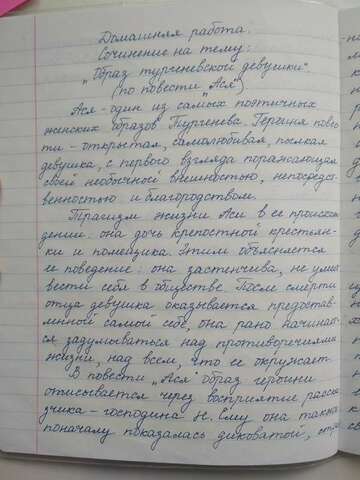 Домашняя работа.
Сочинение на тему:
„Образ тургеневской девушки"
(по повести „Ася")
Ася - один из самых поэтичных
женских образов Тургенева. Героиня повес
ти - открытая, самолюбивая, пылкая
девушка, с первого взгляда поражающая
своей необычной внешностью, непосредст-
венностью и благородством.
Трагизм жизни Аси в ее происхож
дении: она дочь крепостной крестьян-
ки и помещика. Этим объясняется
ее поведение: она застенчива, не умеет
вести себя в обществе. После смерти
отца девушка оказывается предостав-
ленной самой себе, она рано начинает
ся задумываться над противоречиями
жизни, над всем, что ее окружает.
В повести „Ася" образ героини
описывается через восприятие расска
зчика - господина Н. Ему она также
поначалу показалась диковатой,